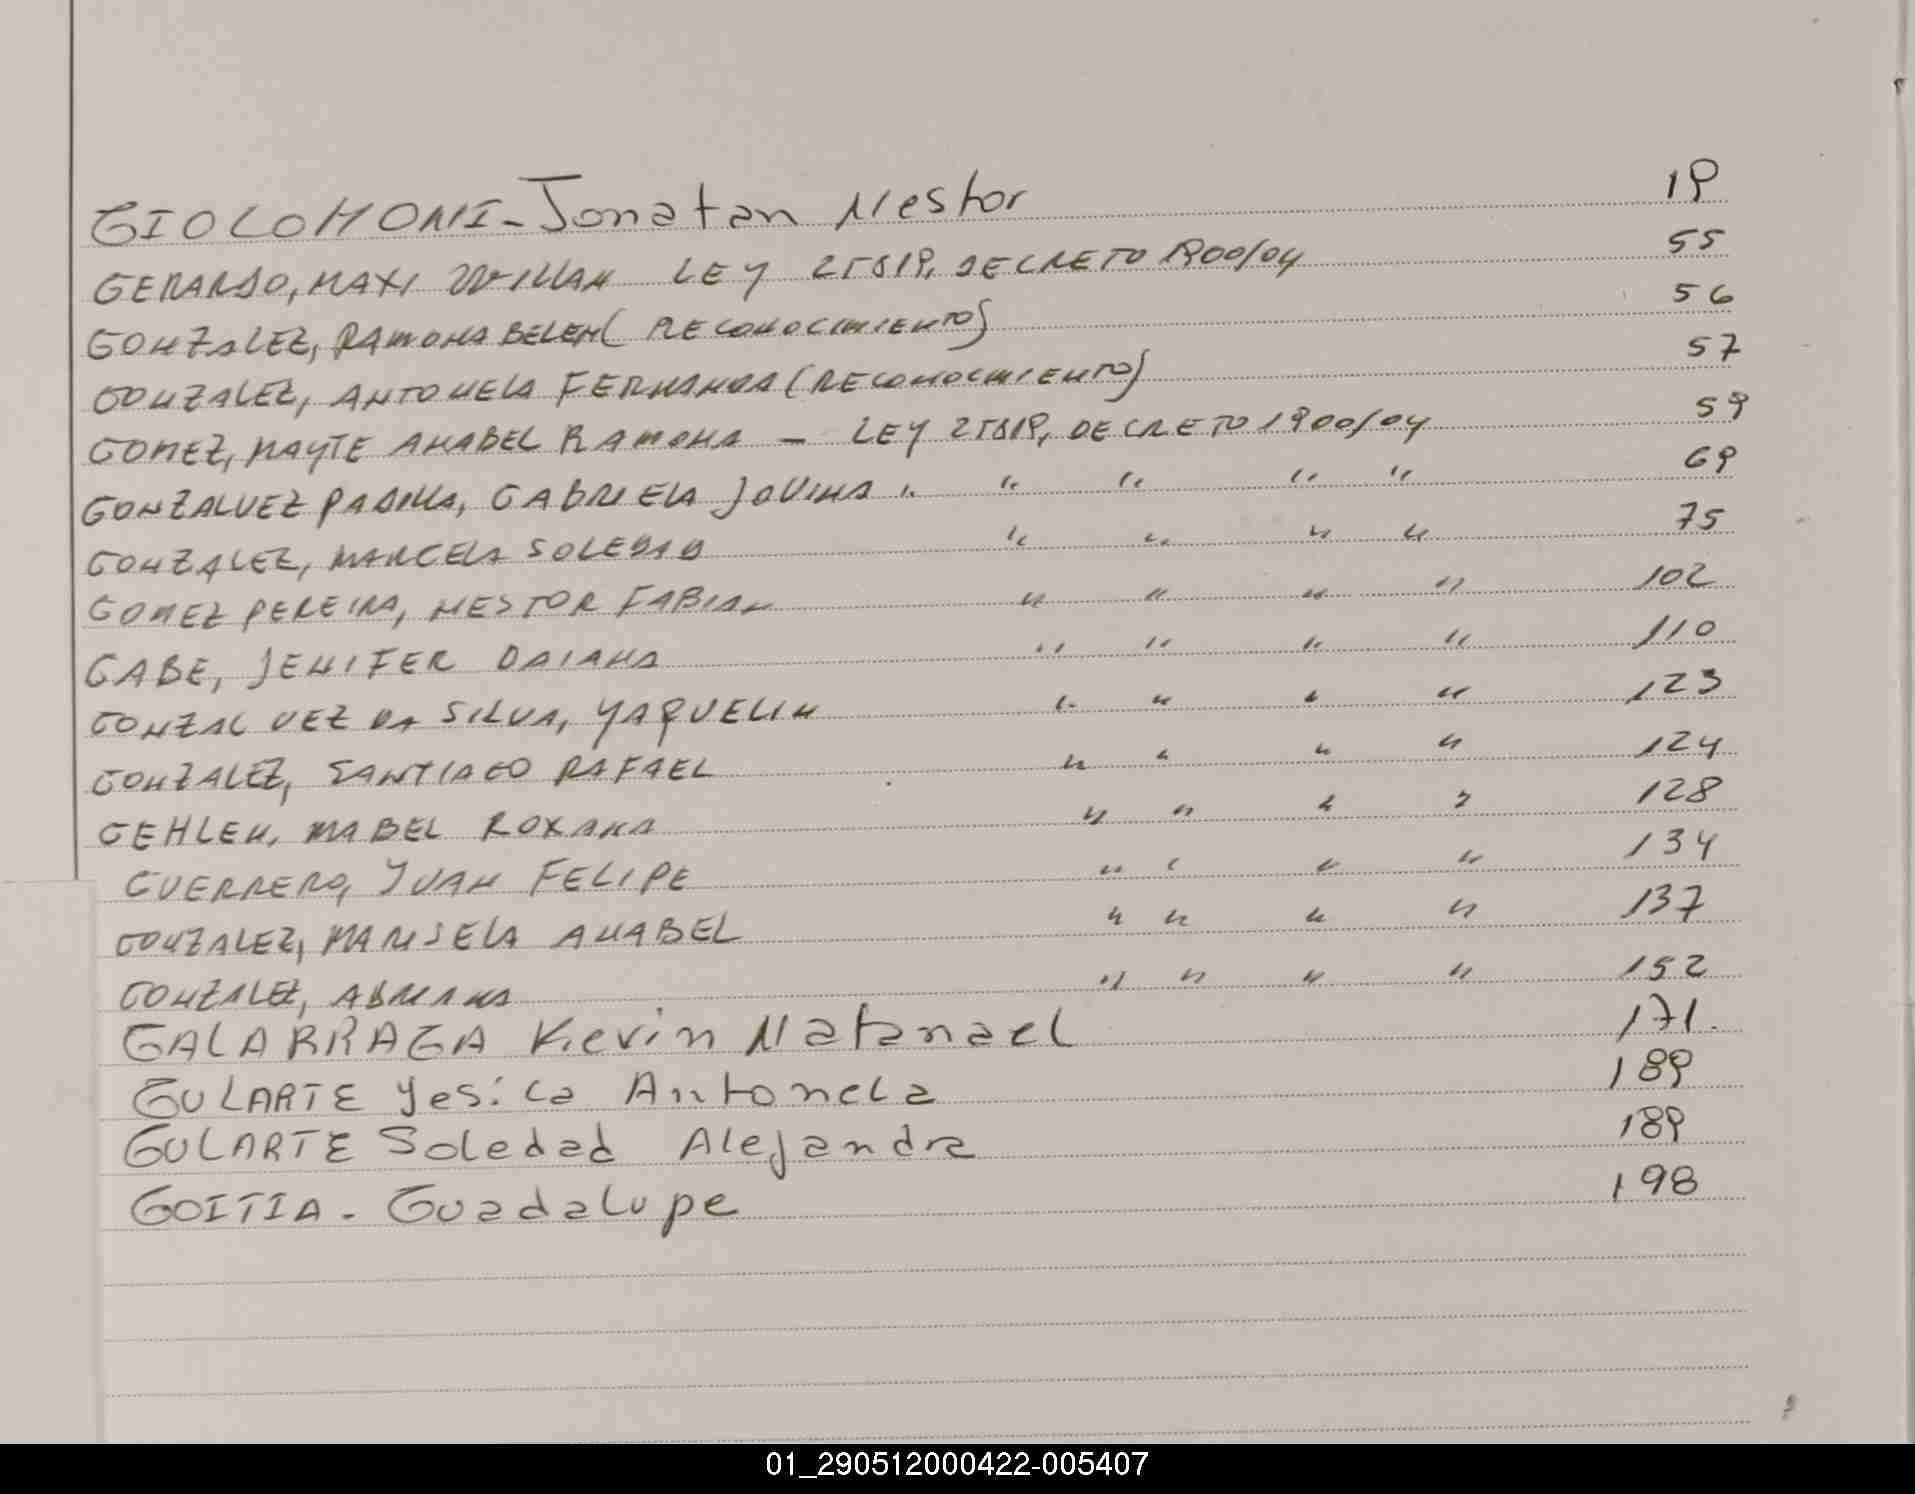 GIOLOMONI - Jonatan Nestor 19
GERARDO, MAXI WILLAN LEY 25819, DECRETO 1900/04 55
GONZALEZ, RAMONA BELEN (RECONOCIMIENTO) 56
GONZALEZ, ANTONELA FERNANDA (RECONOCIMIENTO) 57
GOMEZ, MAYTE ANABEL RAMONA - LEY 25819, DECRETO 1900/04 59
GONZALVEZ PADILLA, GABRIELA JOVINA " " " " " 69
GONZALEZ, MARCELA SOLEDAD " " " " 75
GOMEZ PEREIRA, NESTOR FABIAN " " " " 102
GABE, JENIFER DAIANA " " " " 110
GONZALVEZ DA SILVA, YAQUELIN " " " " 123
GONZALEZ, SANTIAGO RAFAEL " " " " 124
GEHLEN, MABEL ROXANA " " " " 128
GUERRERO, JUAN FELIPE " " " " 134
GONZALEZ, MARISELA ANABEL " " " " 137
GONZALEZ, ADRIANA " " " " 152
GALARRAGA Kevin Natanael 171.
GULARTE Yesica Antonela 189
GULARTE Soledad Alejandra 189
GOITIA - Guadalupe 198
01_290512000422-005407